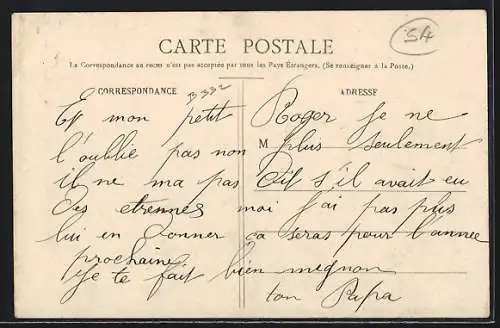 54
CARTE POSTALE
La Correspondance au recto n'est pas acceptée par tous les Pays Étrangers. (Se renseigner à la Poste.)
CORRESPONDANCE
B 332
ADRESSE
Et mon petit Roger je ne
l'oublie pas non M plus seulement
il ne ma pas dit s'il avait eu
des etrennes moi j'ai pas plus
lui en donner ca seras pour l'annee
prochain
je te fait bien mignon
ton Papa